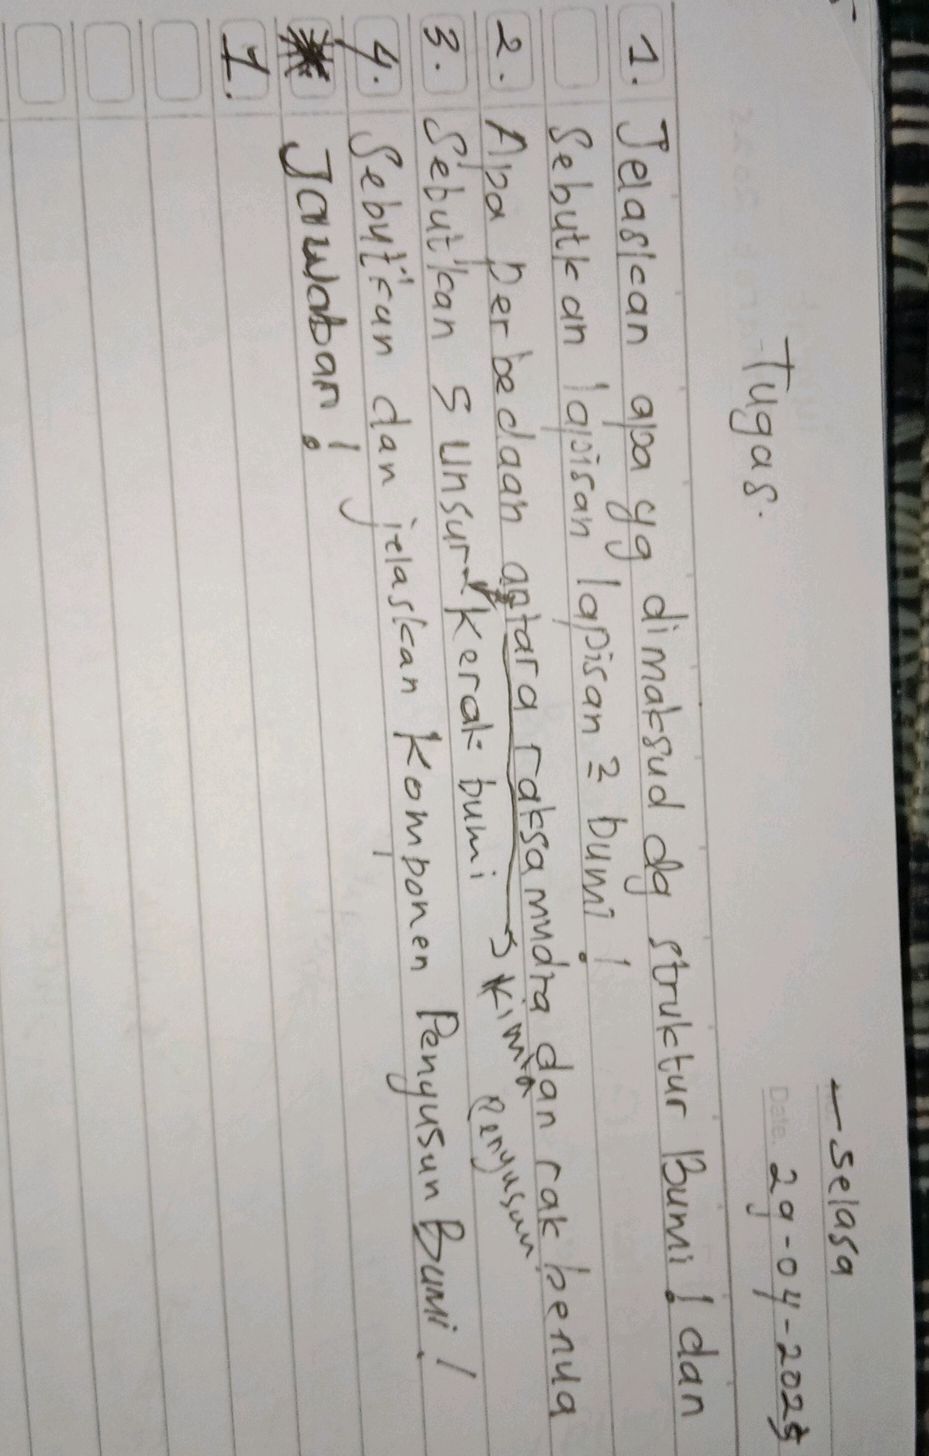 Selasa
Date. 29-04-2025
Tugas.
1. Jelaskan apa yg dimaksud dg struktur Bumi! dan
Sebutkan lapisan lapisan² bumi!
2. Apa perbedaan antara raksamudra dan rak benua
3. Sebutkan 5 unsur kerak bumi → kimia Penyusun
4. Sebutkan dan jelaskan Komponen Penyusun Bumi!
Jawaban!
1.